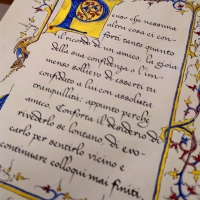 enso che nessuna
altra cosa ci con-
forti tanto quanto
il ricordo di un amico, la gioia
della sua confidenza o l'im-
menso sollievo di esserti tu
confidato a lui con assoluta
tranquillità: appunto perché
amico. Conforta il desiderio di
rivederlo se lontano, di evo-
carlo per sentirlo vicino e
continuare colloqui mai finiti.